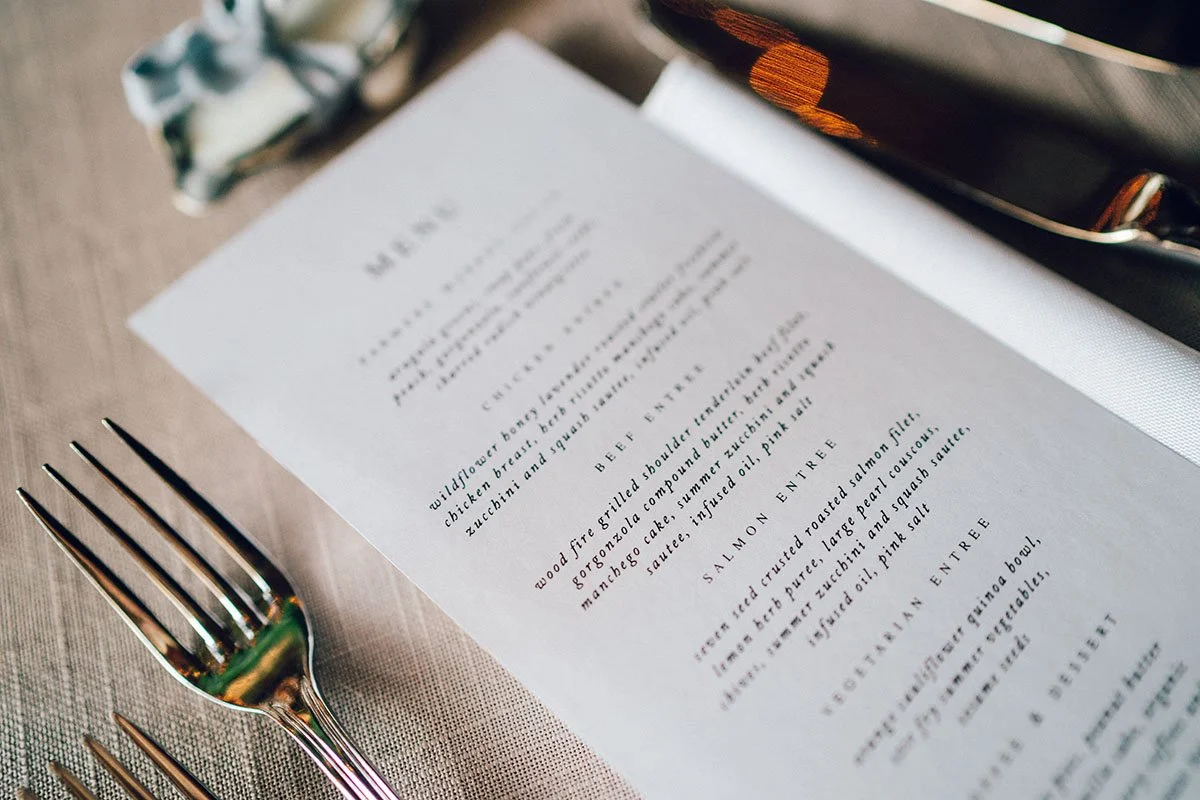 MENU
arugula greens,
CHICKEN ENTREE
wildflower honey lavender roasted
chicken breast, herb risotto manchego cake, summer
zucchini and squash sautee, infused oil, pink salt
BEEF ENTREE
wood fire grilled shoulder tenderloin beef filet,
gorgonzola compound butter, herb risotto
manchego cake, summer zucchini and squash
sautee, infused oil, pink salt
SALMON ENTREE
seven seed crusted roasted salmon filet,
lemon herb puree, large pearl couscous,
chives, summer zucchini and squash sautee,
infused oil, pink salt
VEGETARIAN ENTREE
orange cauliflower quinoa bowl,
stir fry summer vegetables,
sesame seeds
& DESSERT
peanut butter
organic